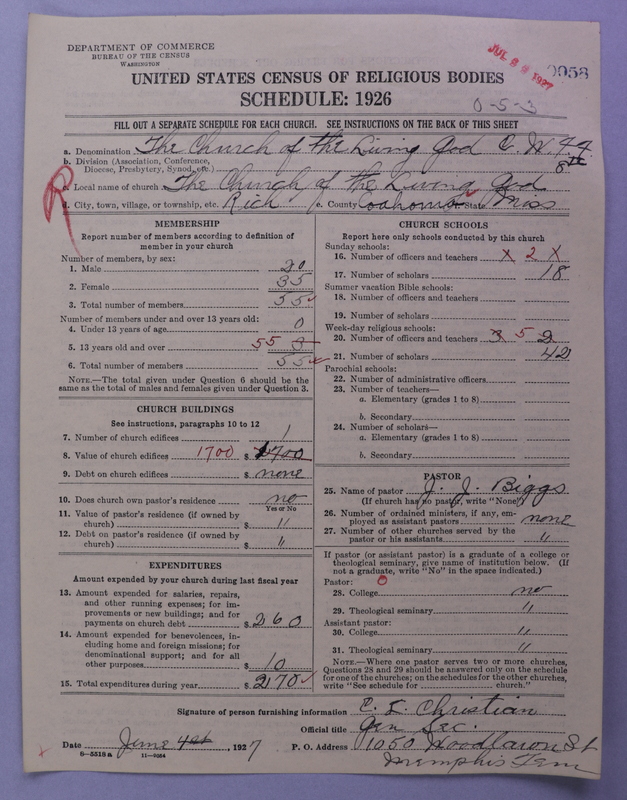 DEPARTMENT OF COMMERCE
BUREAU OF THE CENSUS
WASHINGTON
1927
0958
UNITED STATES CENSUS OF RELIGIOUS BODIES
SCHEDULE: 1926
0-5-3
FILL OUT A SEPARATE SCHEDULE FOR EACH CHURCH. SEE INSTRUCTIONS ON THE BACK OF THIS SHEET
a. Denomination The Church of the Living God C. W. F. F.
b. Division (Association, Conference, Diocese, Presbytery, Synod, etc.) 8th
R
c. Local name of church The Church of the Living God
d. City, town, village, or township, etc. Rich e. County Coahoma State Miss
MEMBERSHIP
Report number of members according to definition of
member in your church
Number of members, by sex:
1. Male 20
2. Female 35
3. Total number of members 55
Number of members under and over 13 years old:
4. Under 13 years of age 0
5. 13 years old and over 55
6. Total number of members 55
NOTE.—The total given under Question 6 should be the
same as the total of males and females given under Question 3.
CHURCH BUILDINGS
See instructions, paragraphs 10 to 12
7. Number of church edifices 1
8. Value of church edifices 1700 $ 1700
9. Debt on church edifices $ none
10. Does church own pastor's residence no
Yes or No
11. Value of pastor's residence (if owned by
church) $ "
12. Debt on pastor's residence (if owned by
church) $ "
EXPENDITURES
Amount expended by your church during last fiscal year
13. Amount expended for salaries, repairs,
and other running expenses; for im-
provements or new buildings; and for
payments on church debt $ 260
14. Amount expended for benevolences, in-
cluding home and foreign missions; for
denominational support; and for all
other purposes $ 10
15. Total expenditures during year $ 270
CHURCH SCHOOLS
Report here only schools conducted by this church
Sunday schools:
16. Number of officers and teachers X 2 X
17. Number of scholars 18
Summer vacation Bible schools:
18. Number of officers and teachers
19. Number of scholars
Week-day religious schools:
20. Number of officers and teachers 3 5 2
21. Number of scholars 42
Parochial schools:
22. Number of administrative officers
23. Number of teachers—
a. Elementary (grades 1 to 8)
b. Secondary
24. Number of scholars—
a. Elementary (grades 1 to 8)
b. Secondary
PASTOR
25. Name of pastor J. J. Biggs
(If church has no pastor, write "None")
26. Number of ordained ministers, if any, em-
ployed as assistant pastors none
27. Number of other churches served by the
pastor or his assistants "
If pastor (or assistant pastor) is a graduate of a college or
theological seminary, give name of institution below. (If
not a graduate, write "No" in the space indicated.)
Pastor: 0
28. College no
29. Theological seminary "
Assistant pastor:
30. College "
31. Theological seminary "
NOTE.—Where one pastor serves two or more churches,
Questions 28 and 29 should be answered only on the schedule
for one of the churches; on the schedules for the other churches,
write "See schedule for church."
Signature of person furnishing information C. L. Christian
Official title Gen Sec.
Date June 4th, 1927 P. O. Address 1050 Woodlawn St
Memphis Tenn
8-5518 a 11-9054